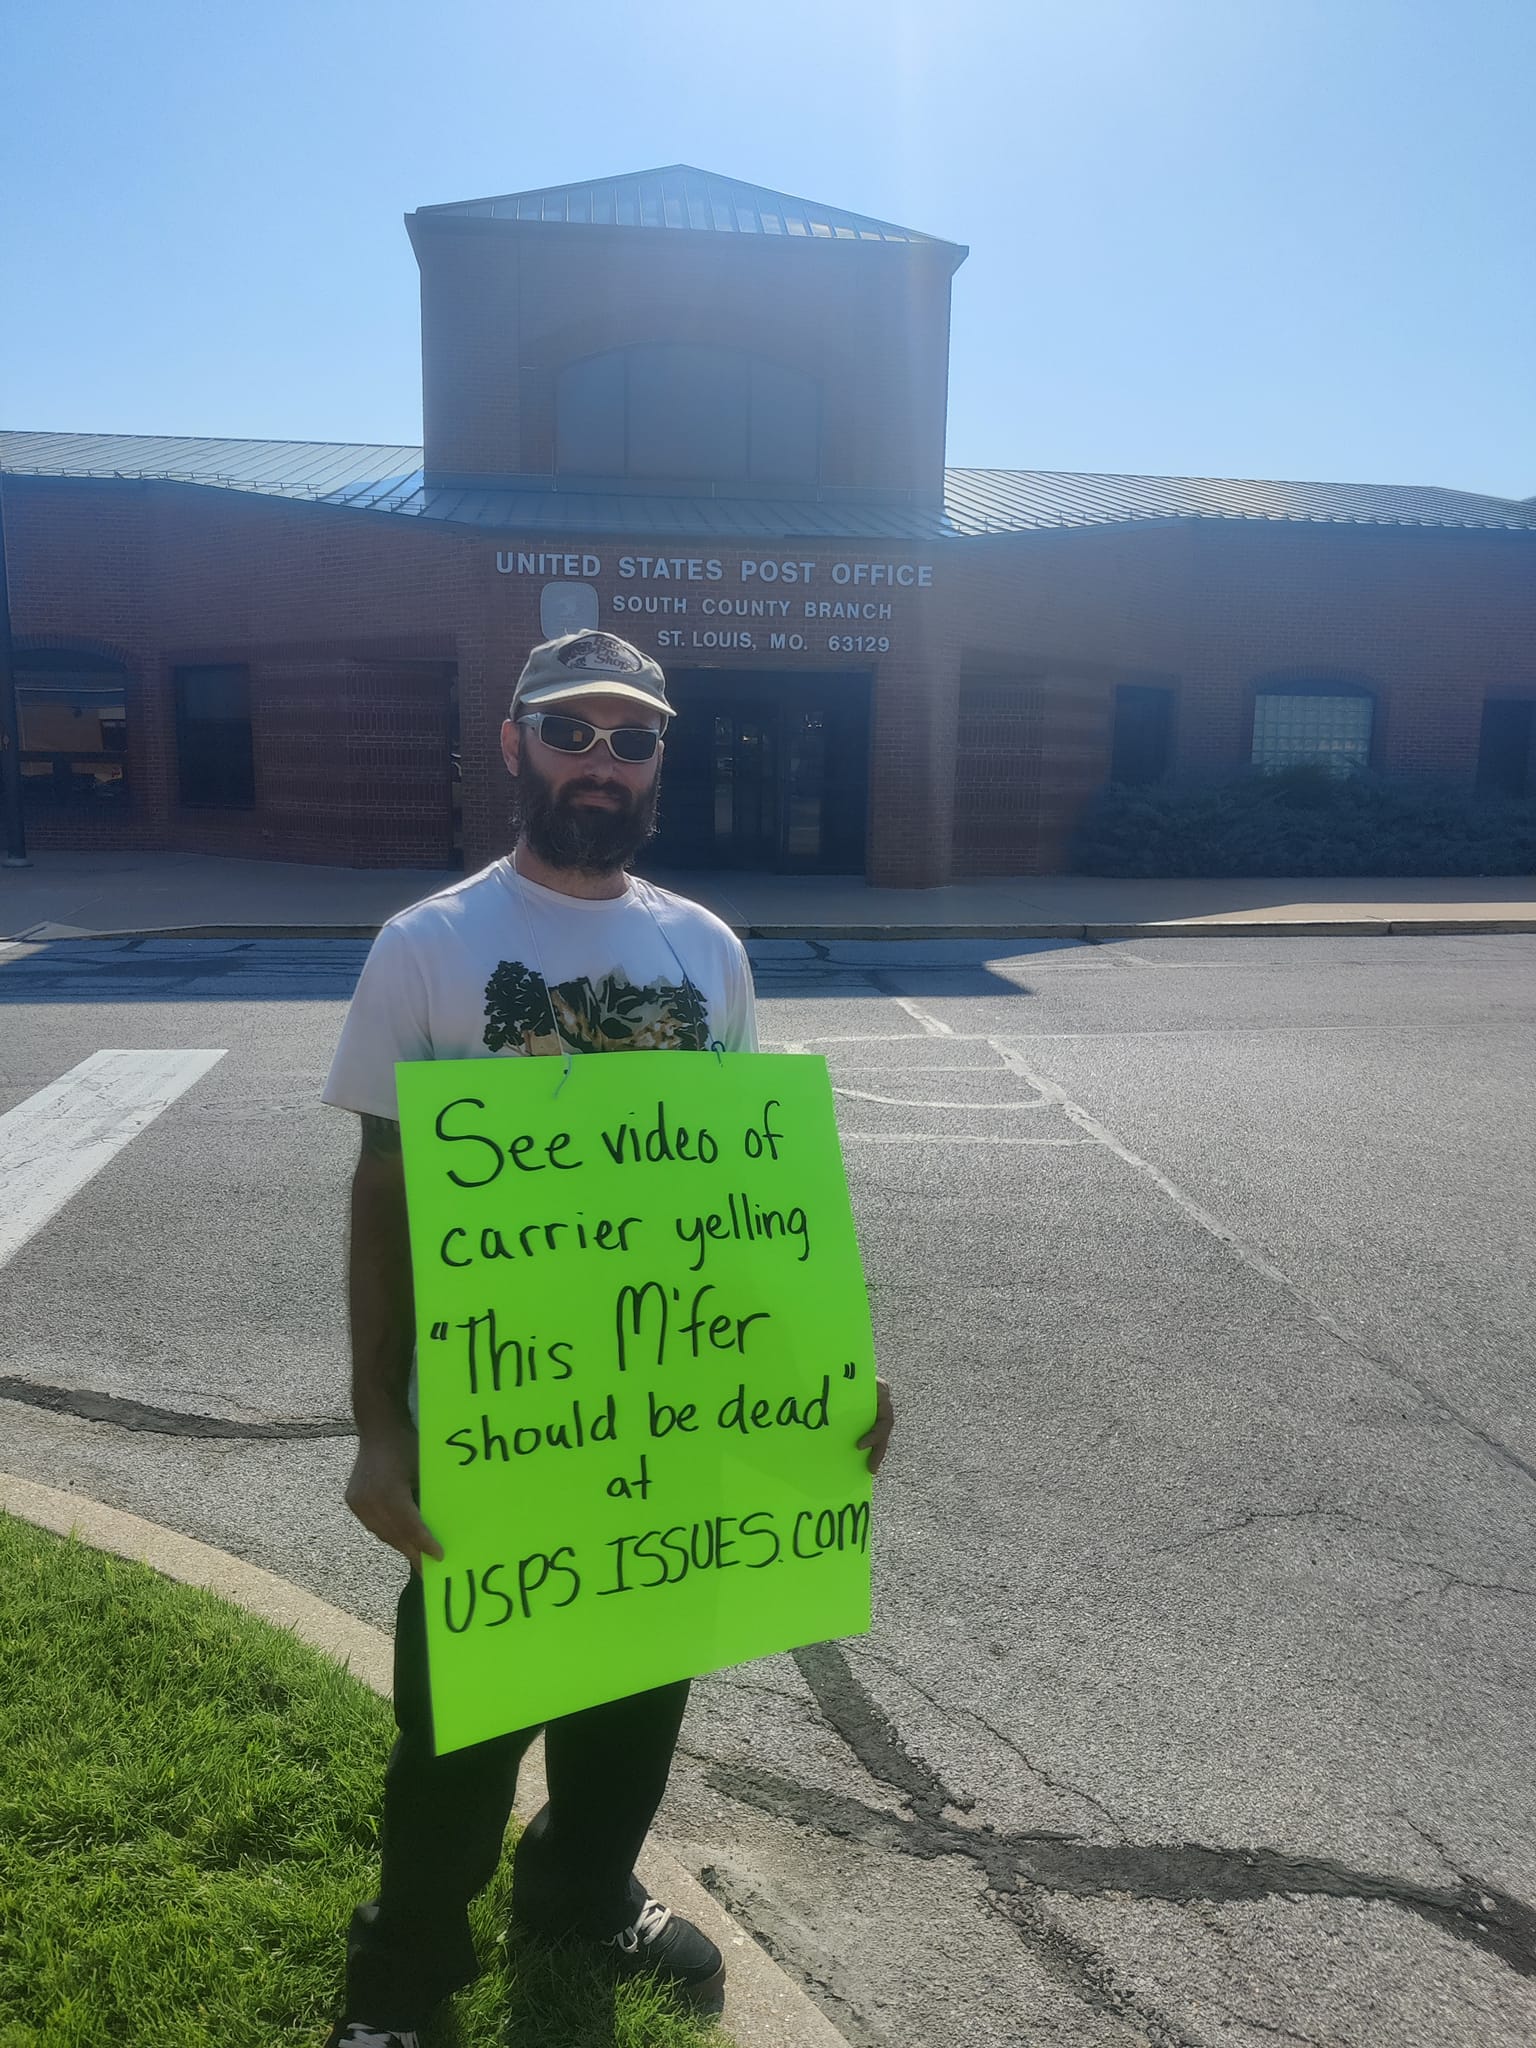 UNITED STATES POST OFFICE
SOUTH COUNTY BRANCH
ST. LOUIS, MO. 63129
Bass
Pro
Shops
See video of
carrier yelling
"This M'fer
should be dead"
at
USPS ISSUES.COM